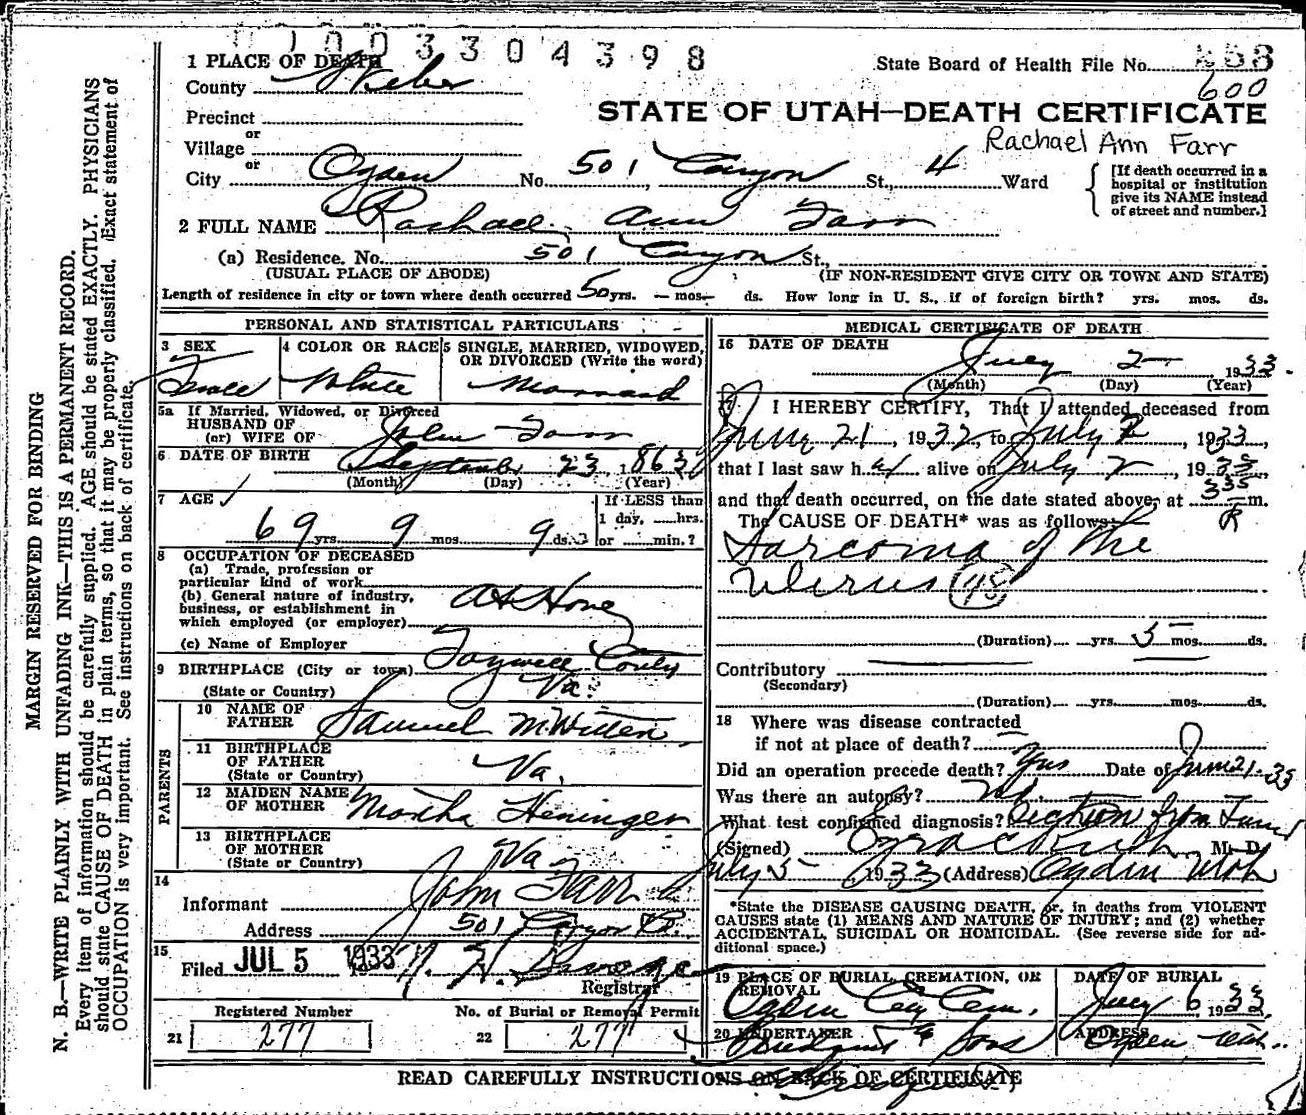 1003304398
1 PLACE OF DEATH
County Weber
State Board of Health File No. 258
600
STATE OF UTAH—DEATH CERTIFICATE
Rachael Ann Farr
Precinct
or
Village
or
City Ogden No. 501 Canyon St., 4 Ward
[If death occurred in a hospital or institution give its NAME instead of street and number.]
2 FULL NAME Rachael Ann Farr
(a) Residence. No. 501 Canyon St.,
(USUAL PLACE OF ABODE) (IF NON-RESIDENT GIVE CITY OR TOWN AND STATE)
Length of residence in city or town where death occurred 50 yrs. — mos. — ds. How long in U. S., if of foreign birth? yrs. mos. ds.
PERSONAL AND STATISTICAL PARTICULARS
3 SEX
Female
4 COLOR OR RACE
White
5 SINGLE, MARRIED, WIDOWED, OR DIVORCED (Write the word)
Married
5a If Married, Widowed, or Divorced
HUSBAND OF
(or) WIFE OF John Farr
6 DATE OF BIRTH September 23, 1863
(Month) (Day) (Year)
7 AGE
69 yrs. 9 mos. 9 ds.
If LESS than
1 day, ......hrs.
or ......min.?
8 OCCUPATION OF DECEASED
(a) Trade, profession or
particular kind of work
(b) General nature of industry,
business, or establishment in
which employed (or employer) At Home
(c) Name of Employer
9 BIRTHPLACE (City or town) Tazwell County
(State or Country) Va.
PARENTS
10 NAME OF FATHER Samuel M. Witten
11 BIRTHPLACE OF FATHER (State or Country) Va.
12 MAIDEN NAME OF MOTHER Martha Heninger
13 BIRTHPLACE OF MOTHER (State or Country) Va
14
Informant John Farr
Address 501 Canyon
15
Filed JUL 5 1933
Registrar
Registered Number
21 277
No. of Burial or Removal Permit
22 277
MEDICAL CERTIFICATE OF DEATH
16 DATE OF DEATH
July 2 1933.
(Month) (Day) (Year)
17 I HEREBY CERTIFY, That I attended deceased from
June 21, 1932, to July 2, 1933,
that I last saw her alive on July 2, 1933,
and that death occurred, on the date stated above, at 335 P m.
The CAUSE OF DEATH* was as follows:
Sarcoma of the
Uterus (48)
(Duration) yrs. 5 mos. ds.
Contributory
(Secondary)
(Duration) yrs. mos. ds.
18 Where was disease contracted
if not at place of death?
Did an operation precede death? Yes Date of June 21-33
Was there an autopsy? No.
What test confirmed diagnosis? Section from Tumor
(Signed) Ezra C Rich M. D.
July 5 1933 (Address) Ogden Utah
*State the DISEASE CAUSING DEATH, or, in deaths from VIOLENT
CAUSES state (1) MEANS AND NATURE OF INJURY; and (2) whether
ACCIDENTAL, SUICIDAL OR HOMICIDAL. (See reverse side for ad-
ditional space.)
19 PLACE OF BURIAL, CREMATION, OR REMOVAL
Ogden City Cem.
DATE OF BURIAL
July 6, 1933
20 UNDERTAKER
& Sons
ADDRESS
Ogden, Utah.
READ CAREFULLY INSTRUCTIONS ON BACK OF CERTIFICATE
MARGIN RESERVED FOR BINDING
N. B.—WRITE PLAINLY WITH UNFADING INK—THIS IS A PERMANENT RECORD.
Every item of information should be carefully supplied. AGE should be stated EXACTLY. PHYSICIANS
should state CAUSE OF DEATH in plain terms, so that it may be properly classified. Exact statement of
OCCUPATION is very important. See instructions on back of certificate.